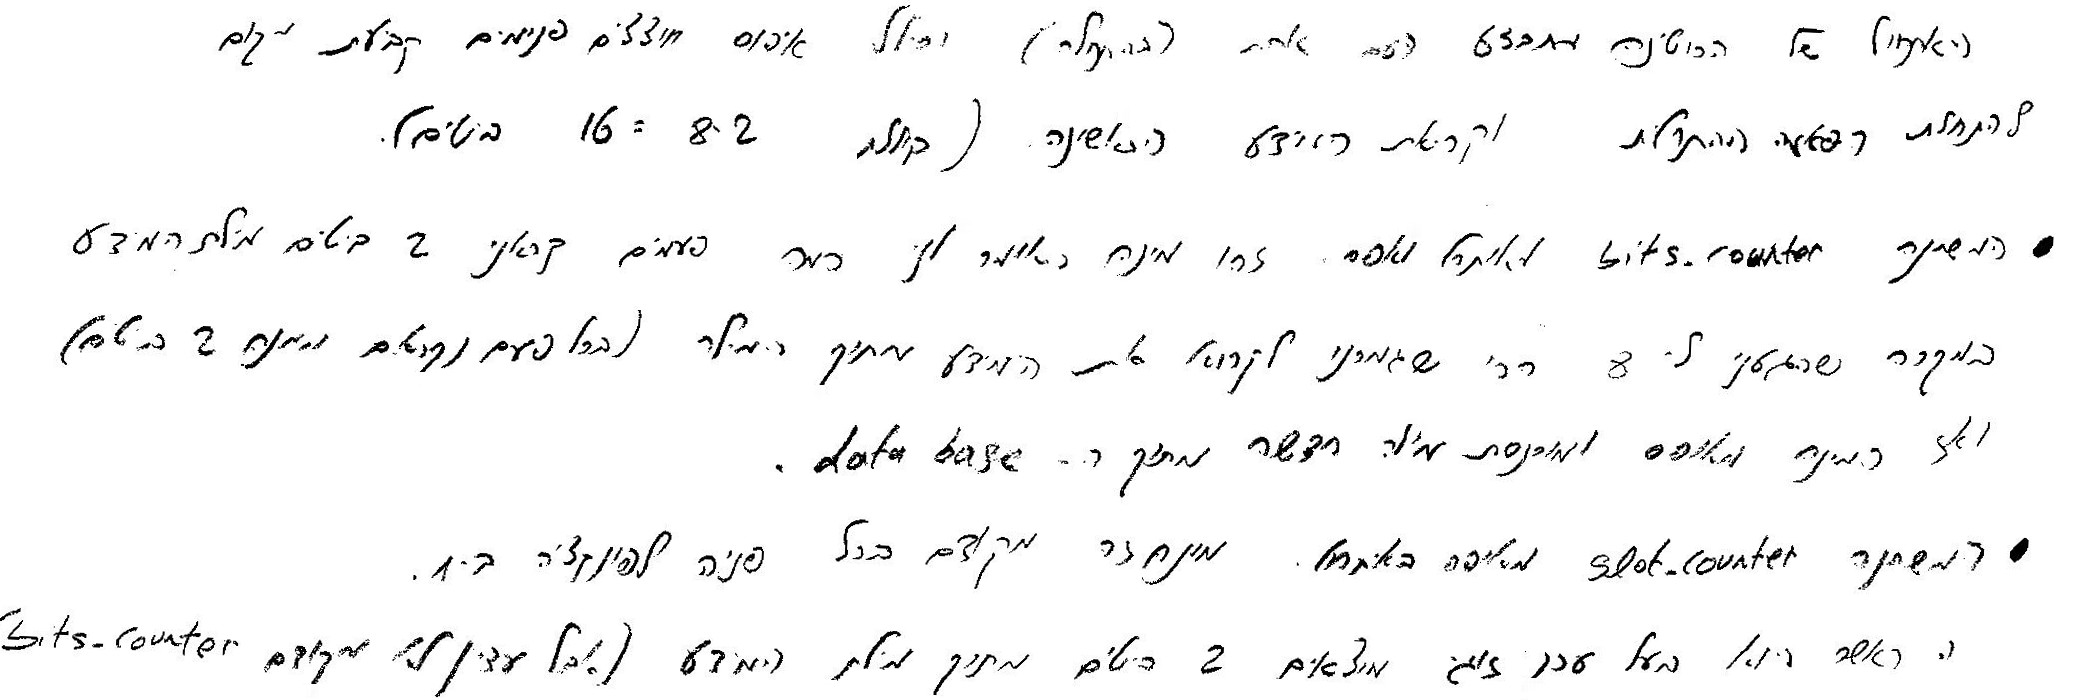 האתחול של הרוטינה מתבצע פעם אחת (בהתחלה) וכולל איפוס חוצצים פנימיים קביעת מקום
להתחלת וקריאת המידע הראשונה (בגודל 8·2 = 16 ביטים).
• המשתנה bits-counter מאותחל לאפס. זהו מונה האומר לנו כמה פעמים קראנו 2 ביטים מילת המידע
במקרה שהגענו ל- 8 הרי שגמרנו לקרוא את המידע מתוך המילה (בכל פעם נקראים ממנה 2 ביטים)
ואז המונה מאופס ומוכנסת מילה חדשה מתוך ה- data base .
• המשתנה slot-counter מאופס באתחול. מונה זה מקודם בכל פניה לפונקציה ב-1.
כאשר הוא בעל ערך זוגי מוצאים 2 ביטים מתוך מילת המידע (אבל עדין לא מקודם bits-counter